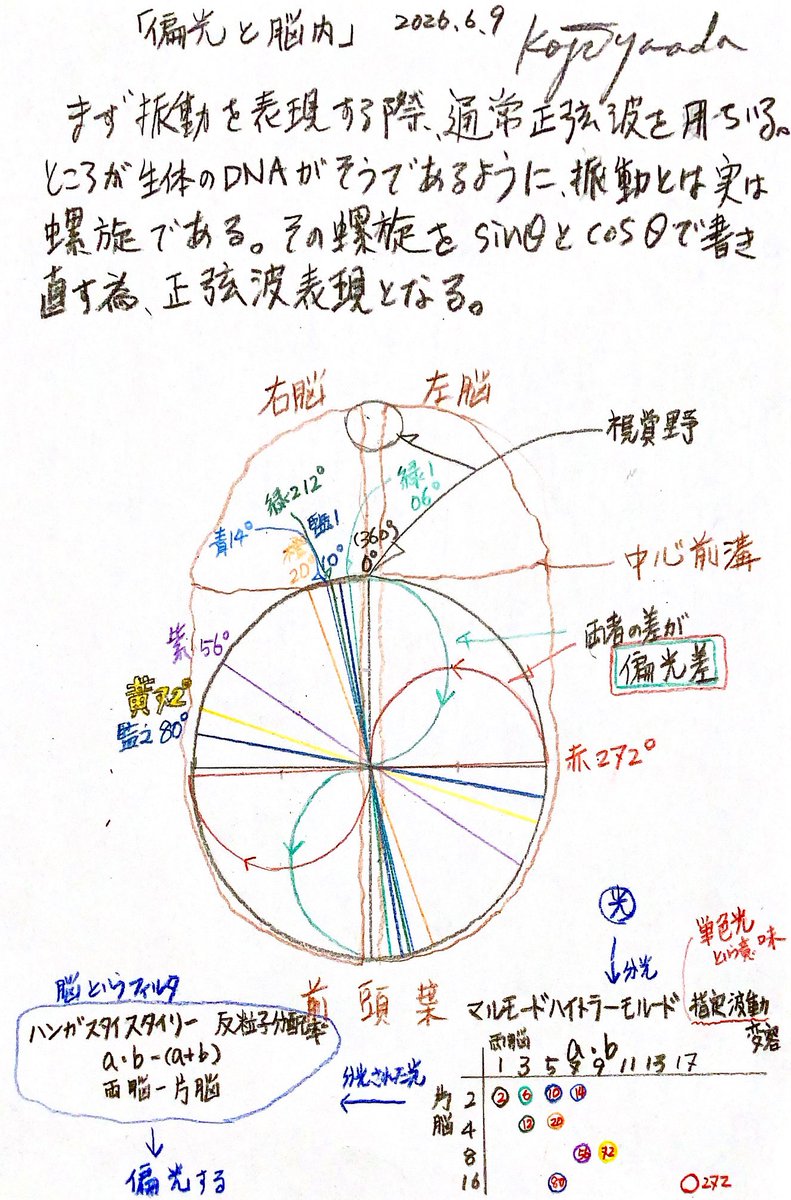 「偏光と脳内」 2026.6.9 Koji Yamada
まず振動を表現する際、通常正弦波を用ちいる。
ところが生体のDNAがそうであるように、振動とは実は
螺旋である。その螺旋を sinθとcosθで書き
直す為、正弦波表現となる。
右脳 左脳
視覚野
緑2 12°
緑1
06°
青14°
藍1
10°
橙
20°
(360°)
0°
中心前溝
紫56°
両者の差が
偏光差
黄72°
藍2 80°
赤272°
光
分光
単色光
という意味
脳というフィルタ
前頭葉
マルモードハイトラーモルード 指定波動
変容
ハンガスタイスタイリー 反粒子分配率
a・b-(a+b)
両脳-片脳
偏光する
分光された光
両脳 a・b
1 3 5 7 9 11 13 17
片脳
2 2 6 10 14
4 12 20
8 56 72
16 80 272